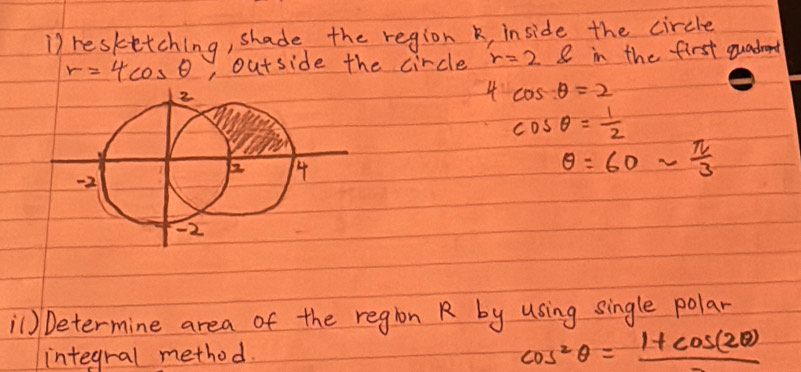 i) resketching, shade the region R, inside the circle
r = 4cos θ, outside the circle r = 2 & in the first quadrant
4 cos θ = 2
cos θ = 1/2
θ = 60 ~ π/3
2
-2
2
4
-2
ii) Determine area of the region R by using single polar
integral method.
cos² θ = 1 + cos(2θ)